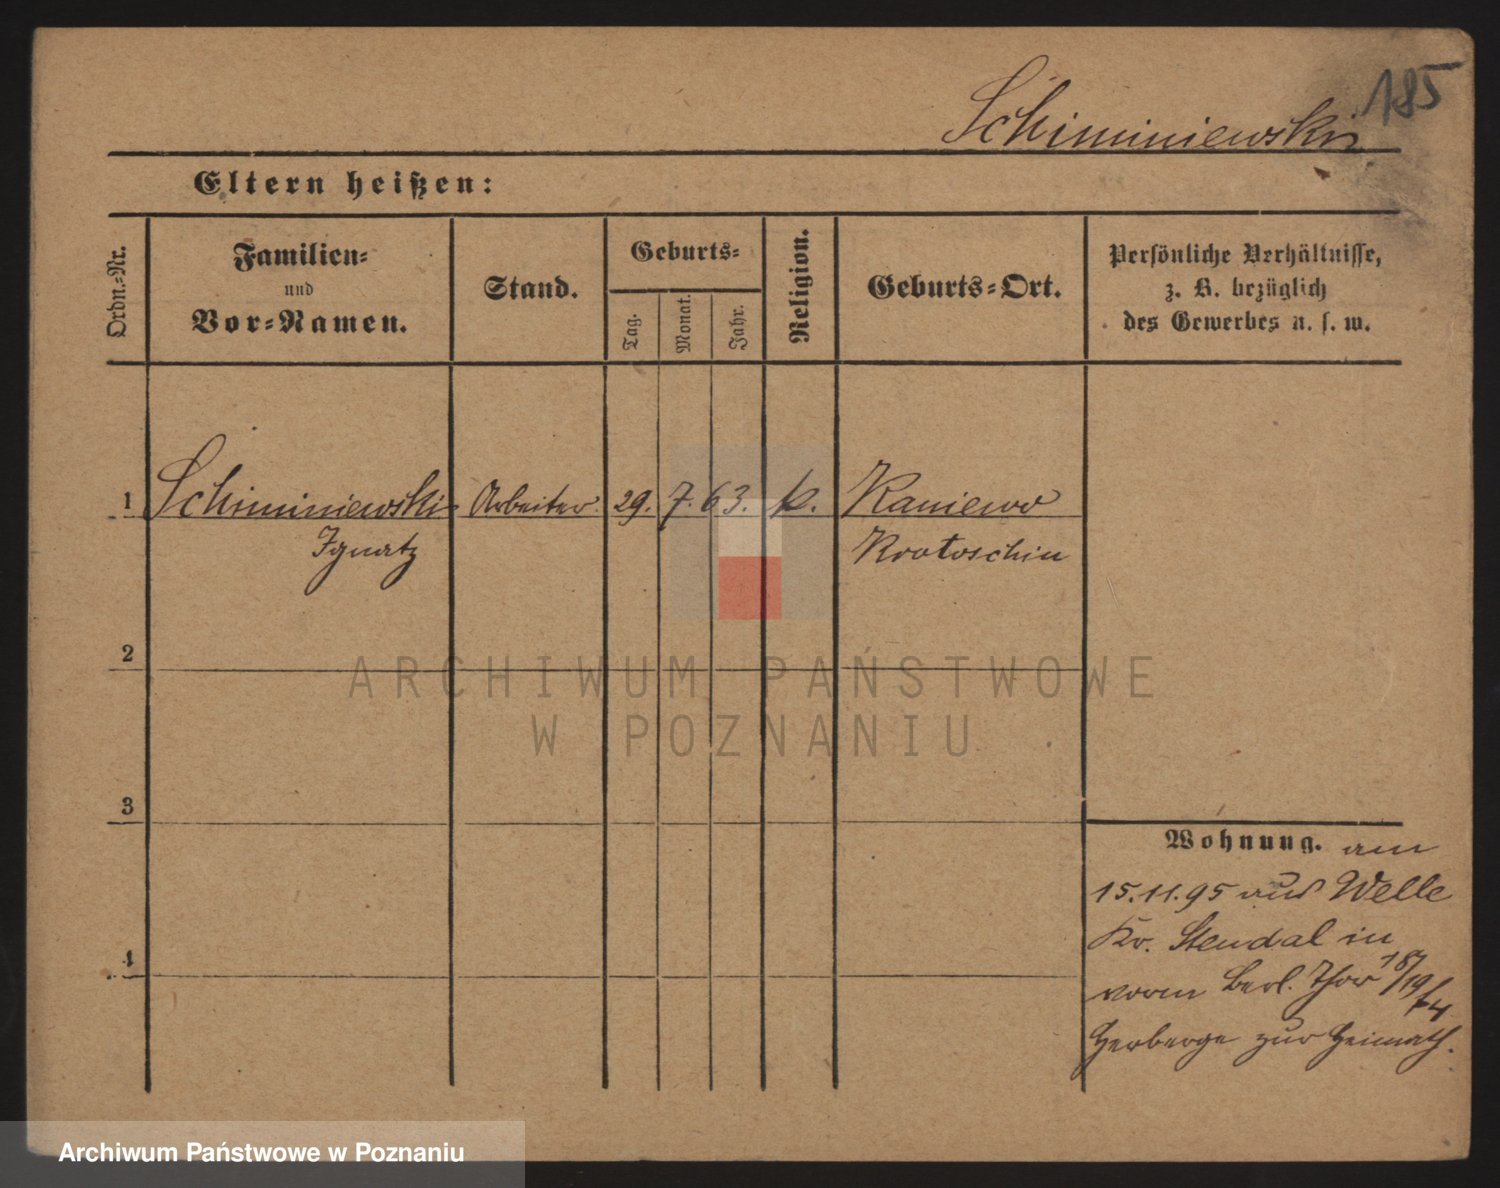 185
Schiminiewski
Eltern heißen:
Ordn.=Nr.
Familien=
und
Vor=Namen.
Stand.
Geburts=
Tag.
Monat.
Jahr.
Religion.
Geburts=Ort.
Persönliche Verhältnisse,
z. B. bezüglich
des Gewerbes u. s. w.
1 Schiminiewski Arbeiter. 29. 7. 63. k. Kaniewo
Ignatz Krotoschin
2
ARCHIWUM PAŃSTWOWE
W POZNANIU
3
Wohnung. am
15.11.95 aus Welle
Kr. Stendal in
vorm Berl. Thor 18/19
Herberge zur Heimath.
4
Archiwum Państwowe w Poznaniu